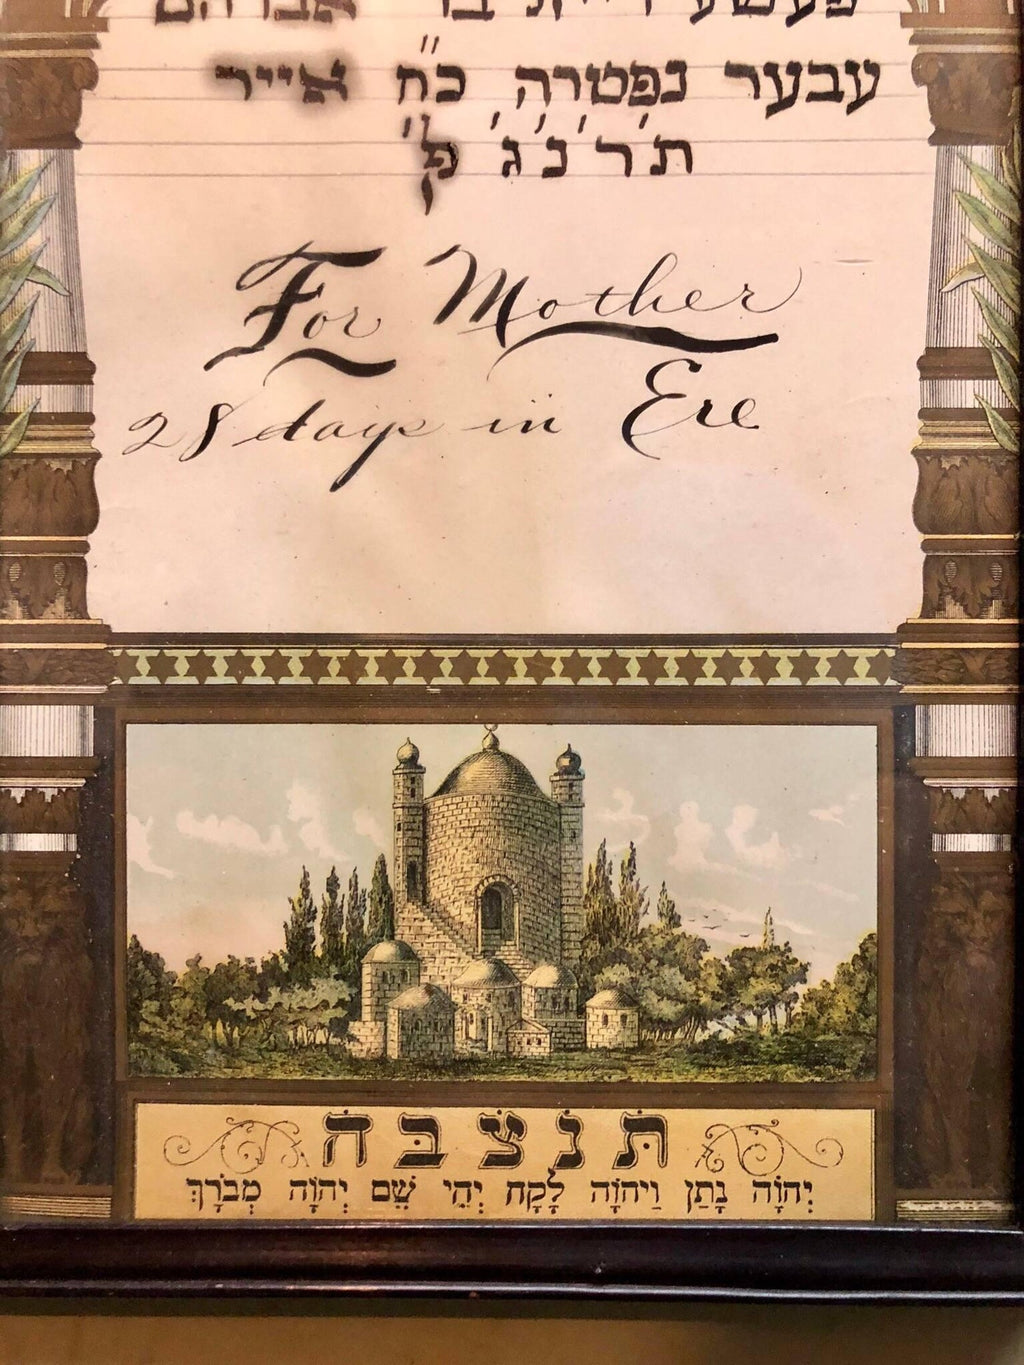 עבער נפטרה כ״ח אייר
ת׳ר׳נ׳ג׳ פ׳ק׳
For Mother
28 days in Ere
תנצבה
יְהוָֹה נָתַן וַיהוָֹה לָקָח יְהִי שֵׁם יְהוָֹה מְבֹרָךְ